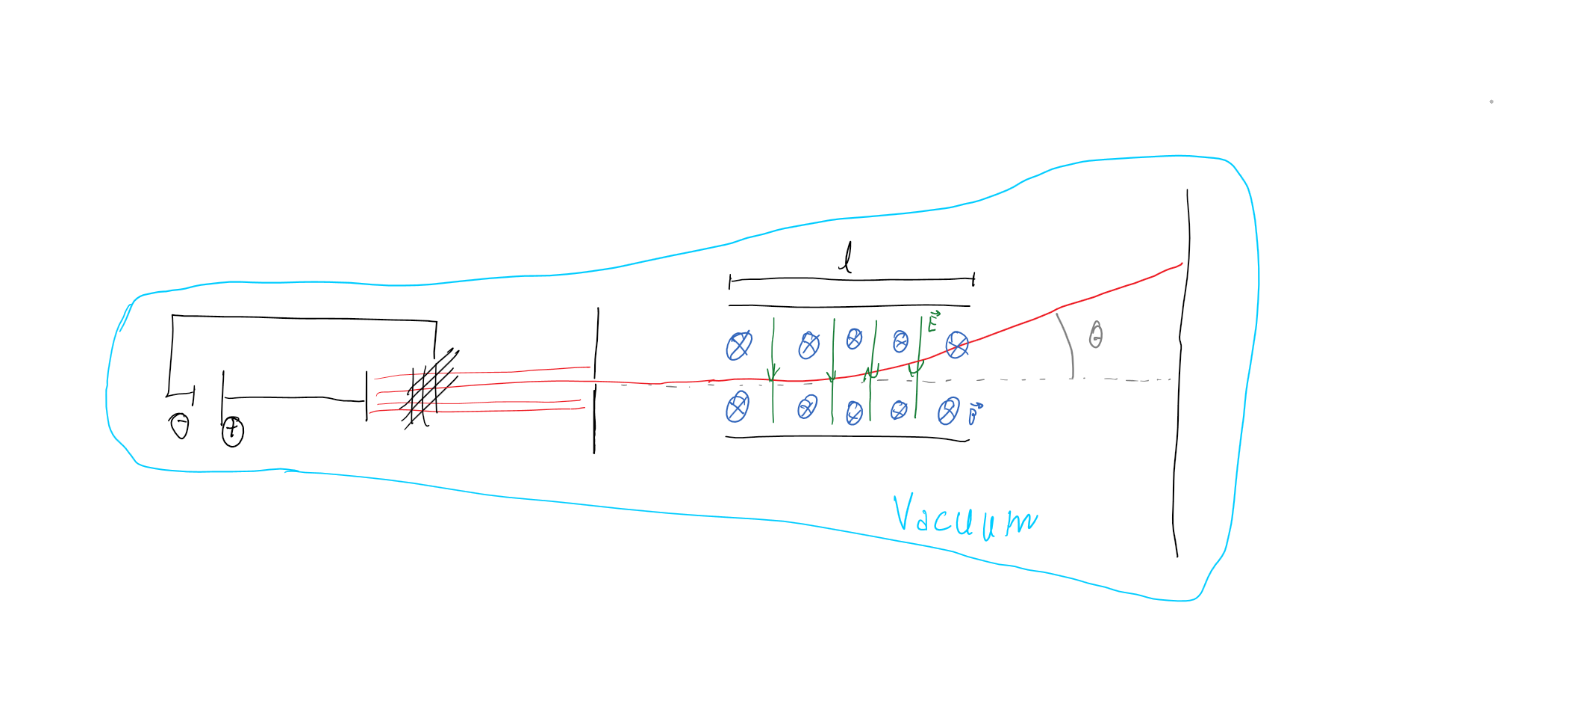 l
E⃗
θ
⊖ ⊕
B⃗
Vacuum